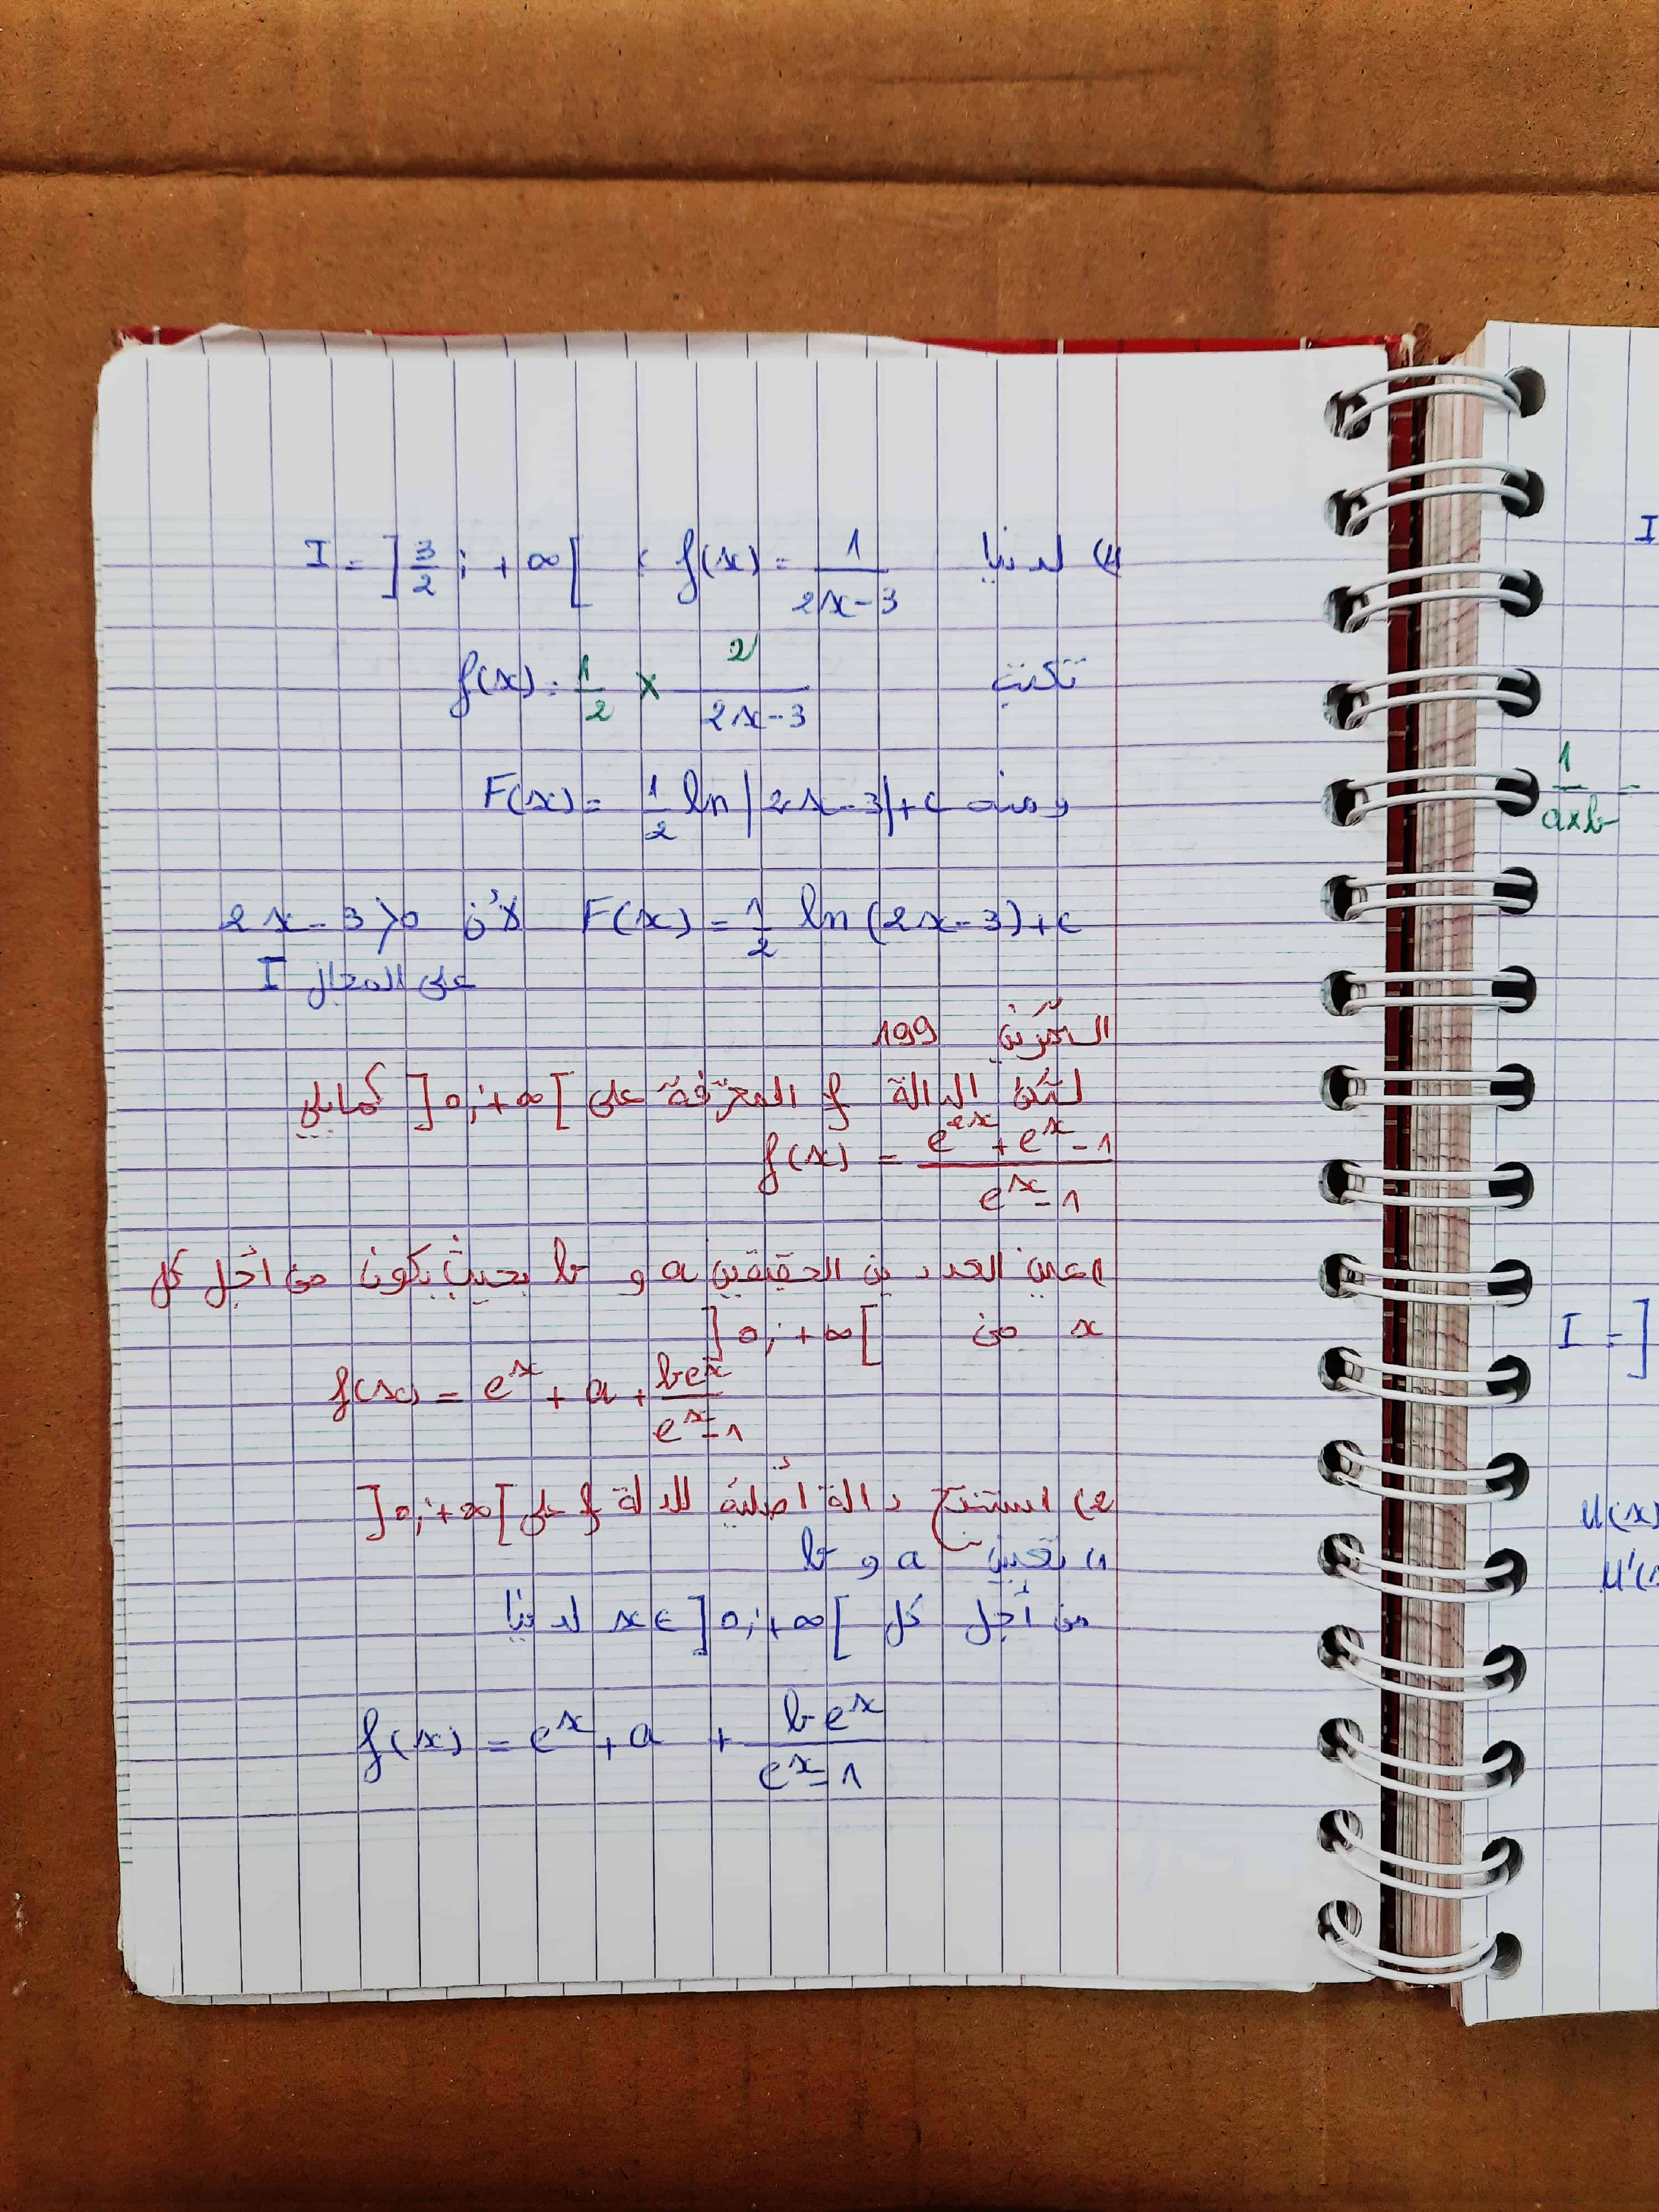 4) لدينا f(x) = 1/(2x-3) ، I = ]3/2 ; +∞[
تكتب f(x) = 1/2 × 2/(2x-3)
ومنه F(x) = 1/2 ln|2x-3|+c
F(x) = 1/2 ln(2x-3)+c لأن 2x-3>0
على المجال I
التمرين 199
لتكن الدالة f المعرفة على ]0;+∞[ كمايلي
f(x) = (e^2x + e^x - 1)/(e^x - 1)
1) عين العددين الحقيقين a و b بحيث يكون من أجل كل
x من ]0;+∞[
f(x) = e^x + a + be^x/(e^x - 1)
2) استنتج دالة أصلية للدلة f على ]0;+∞[
1) تعيين a و b
من أجل كل x∈]0;+∞[ لدينا
f(x) = e^x + a + be^x/(e^x - 1)
I
1/(a×b) =
I = ]
u(x)
u'(